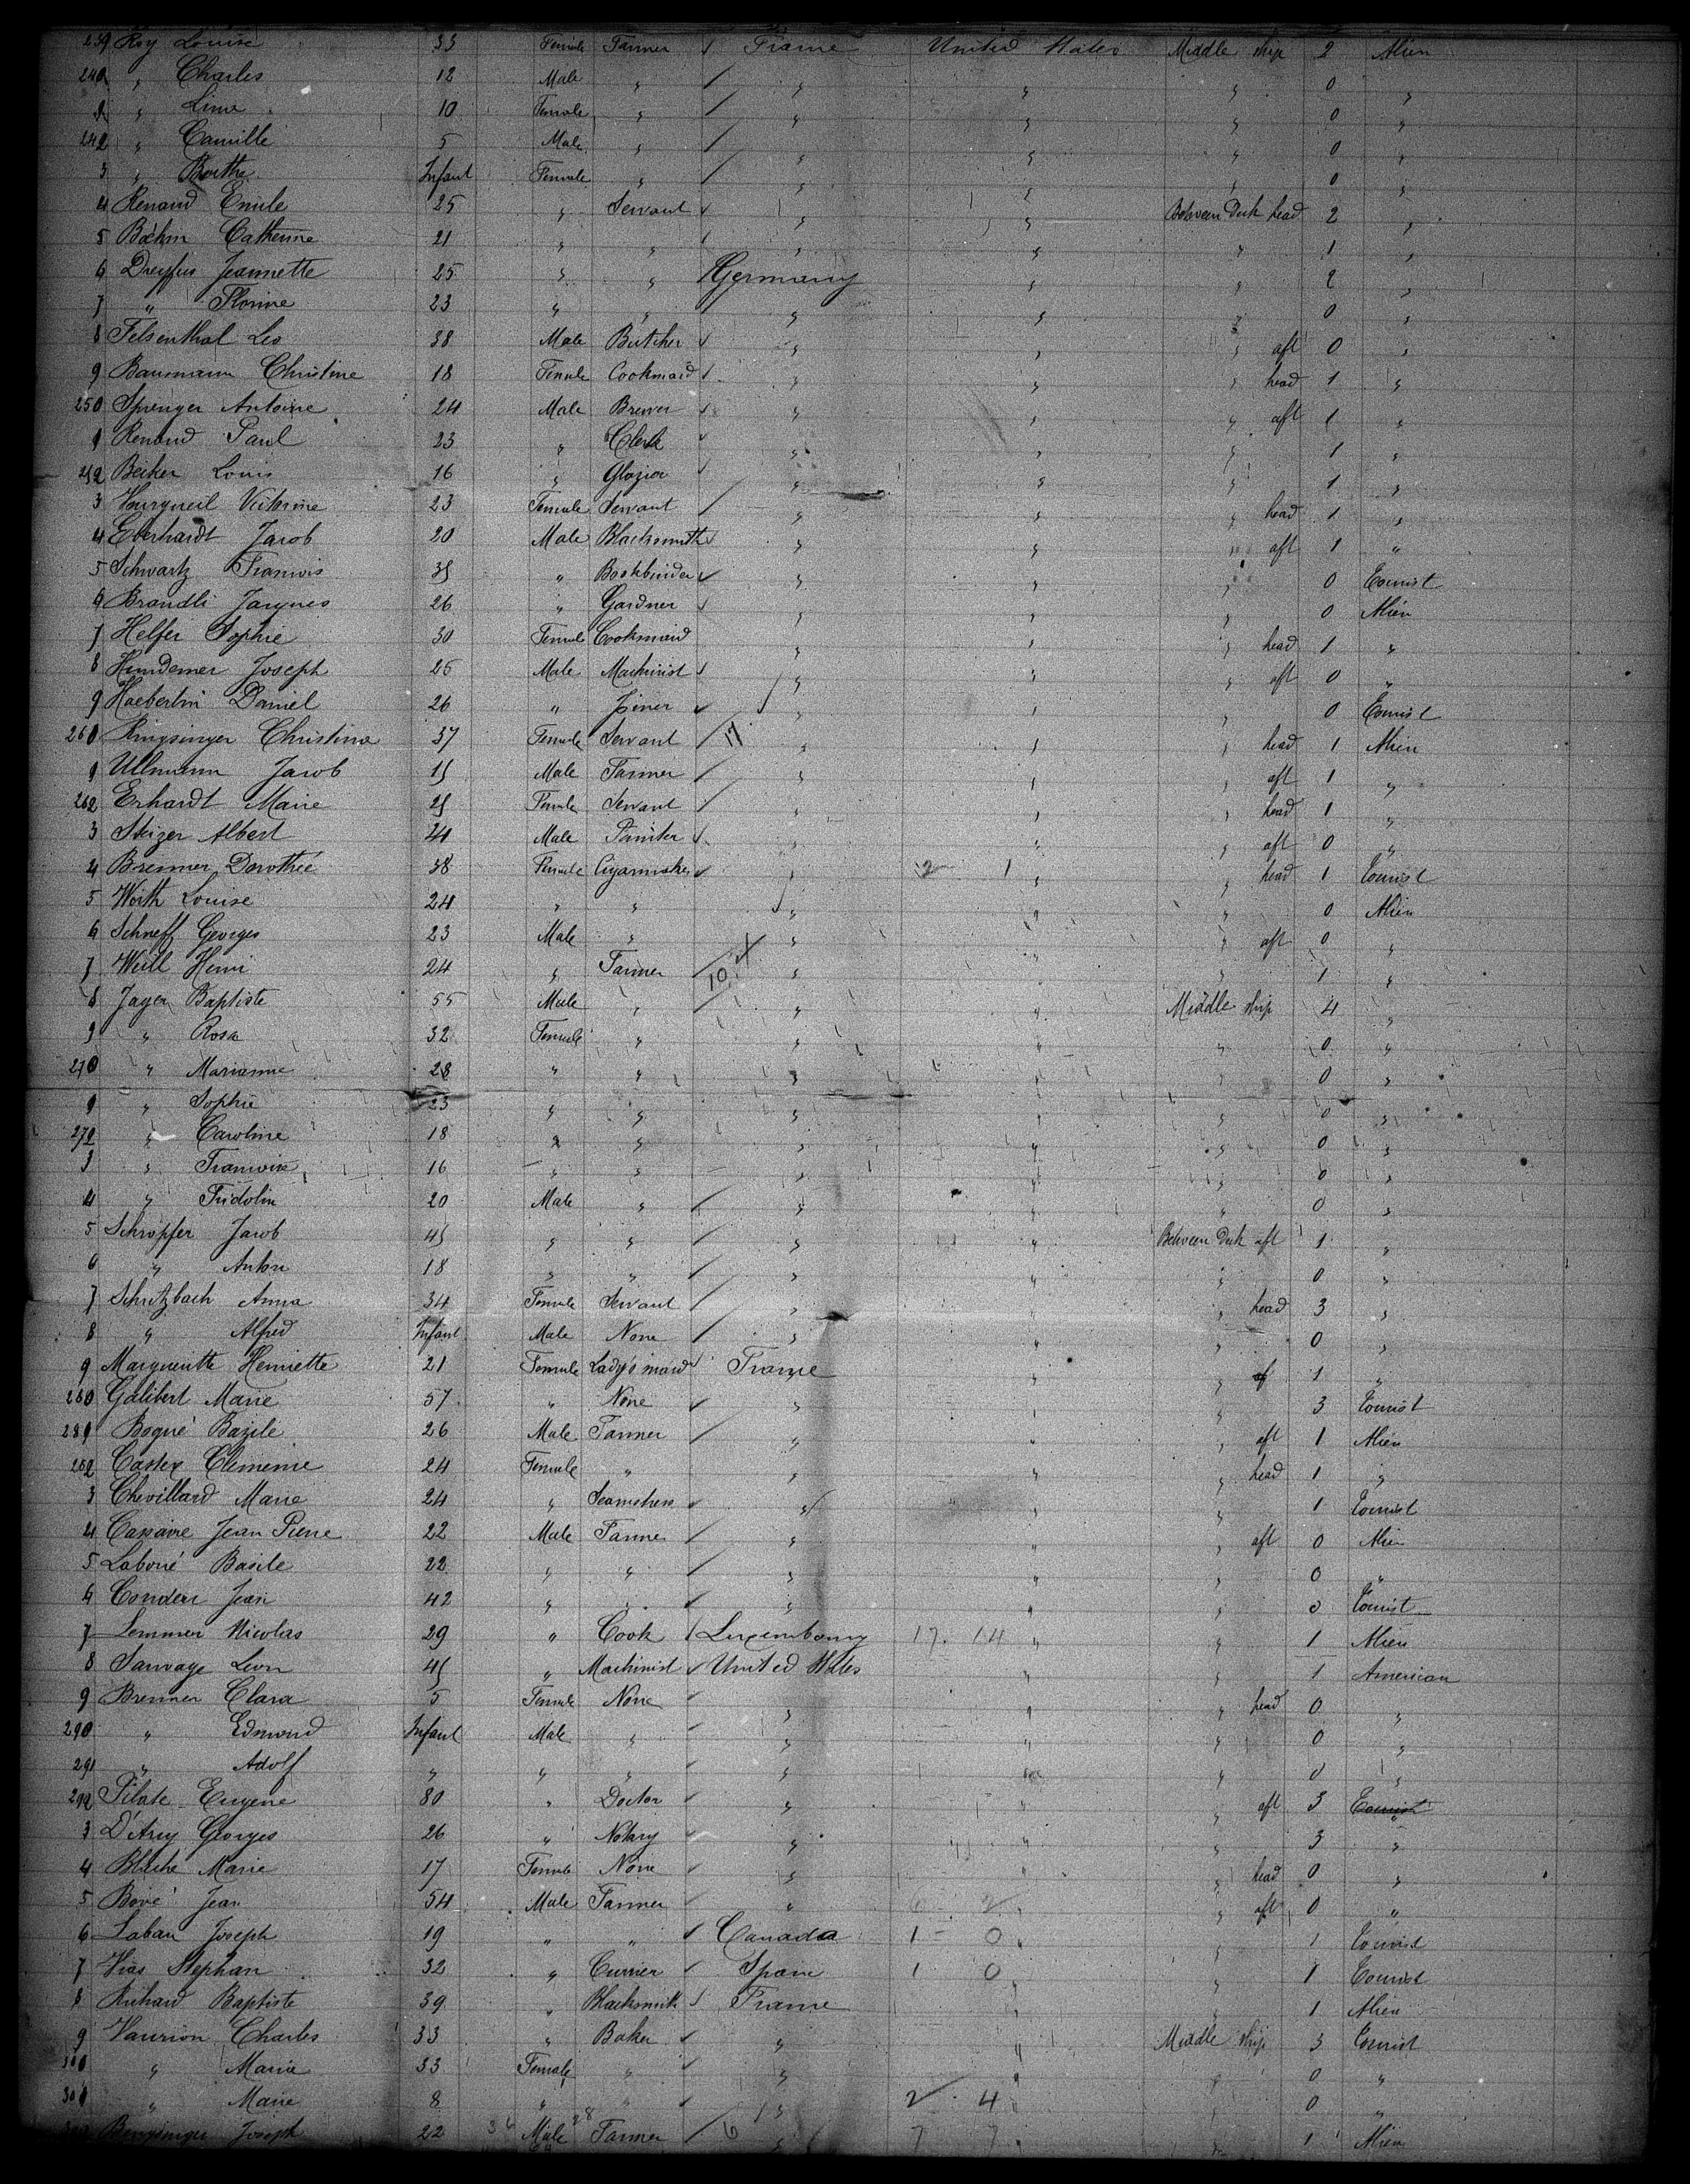 239 Roy Louise 33 Female Farmer France United States Middle ship 2 Alien
240 " Charles 12 Male " " " " 0 "
1 " Lina 10 Female " " " " 0 "
242 " Camille 5 Male " " " " 0 "
3 " Berthe Infant Female " " " " 0 "
4 Renaud Emile 25 " Servant " " Between Deck head 2 "
5 Bæhm Catherine 21 " " " " " 1 "
6 Dreyfus Jeannette 25 " " Germany " " 2 "
7 " Florine 23 " " " " " 0 "
8 Felsenthal Leo 38 Male Butcher " " " aft 0 "
9 Baumann Christine 18 Female Cookmaid " " " head 1 "
250 Sprenger Antoine 24 Male Brewer " " " aft 1 "
1 Renaud Paul 23 " Clerk " " " 1 "
252 Becker Louis 16 " Glazier " " " 1 "
3 Victorine 23 Female Servant " " " head 1 "
4 Eberhardt Jacob 20 Male Blacksmith " " " aft 1 "
5 Schwartz Francois 35 " Bookbinder " " " 0 Tourist
6 Brandli Jacques 26 " Gardner " " " 0 Alien
7 Helfer Sophie 30 Female Cookmaid " " " head 1 "
8 Hundemer Joseph 25 Male Machinist " " " aft 0 "
9 Haeberlin Daniel 26 " Joiner " " " 0 Tourist
260 Ringsinger Christina 37 Female Servant 17 " " " head 1 Alien
1 Ullmann Jacob 15 Male Farmer " " " aft 1 "
262 Erhardt Marie 25 Female Servant " " " head 1 "
3 Steizer Albert 24 Male Painter " " " aft 0 "
4 Brenner Dorothée 38 Female Cigarmaker " 2 1 " " head 1 Tourist
5 Wirth Louise 24 " " " " " 0 Alien
6 Schneff Georges 23 Male " " " " aft 0 "
7 Weill Henri 24 " Farmer 10 " " " 1 "
8 Jager Baptiste 55 Male " " " Middle ship 4 "
9 " Rosa 32 Female " " " " 0 "
270 " Marianne 28 " " " " " 0 "
1 " Sophie 23 " " " " " 0 "
272 " Caroline 18 " " " " " 0 "
3 " Francoise 16 " " " " " 0 "
4 " Fridolin 20 Male " " " " 0 "
5 Schropfer Jacob 45 " " " " Between Deck aft 1 "
6 " Anton 18 " " " " " 0 "
7 Schritzbach Anna 34 Female Servant " " " head 3 "
8 " Alfred Infant Male None " " " 0 "
9 Margueritte Henriette 21 Female Lady's maid France " " 1 "
280 Galibert Marie 57 " None " " " 3 Tourist
281 Bogué Bazile 26 Male Farmer " " " aft 1 Alien
282 Castex Clemence 24 Female " " " " head 1 "
3 Chevillard Marie 24 " Seamstress " " " 1 Tourist
4 Cassaire Jean Pierre 22 Male Farmer " " " aft 0 Alien
5 Laborié Basile 22 " " " " " 0 "
6 Condeu Jean 42 " " " " " 0 Tourist
7 Lemmer Nicolas 29 " Cook Luxembourg 17 14 " " 1 Alien
8 Sauvage Leon 45 " Machinist United States " " 1 American
9 Brenner Clara 5 Female None " " " head 0 "
290 " Edmond Infant Male " " " " 0 "
291 " Adolf " " " " " " 0 "
292 Pilate Eugene 80 " Doctor " " " aft 3 Tourist
3 D'Arcy Georges 26 " Notary " " " 3 "
4 Marie 17 Female None " " " head 0 "
5 Bové Jean 54 Male Farmer " " " aft 0 "
6 Laban Joseph 19 " " Canada 1 0 " " 1 Tourist
7 Vias Stephan 32 " Currier Spain 1 0 " " 1 Tourist
8 Richard Baptiste 39 " Blacksmith France " " 1 Alien
9 Vaurion Charles 33 " Baker " " Middle ship 3 Tourist
300 " Maria 33 Female " " " " 0 "
301 " Marie 8 " " " 2 4 " " 0 "
302 Joseph 22 Male Farmer 6 " 7 7 " " 1 Alien